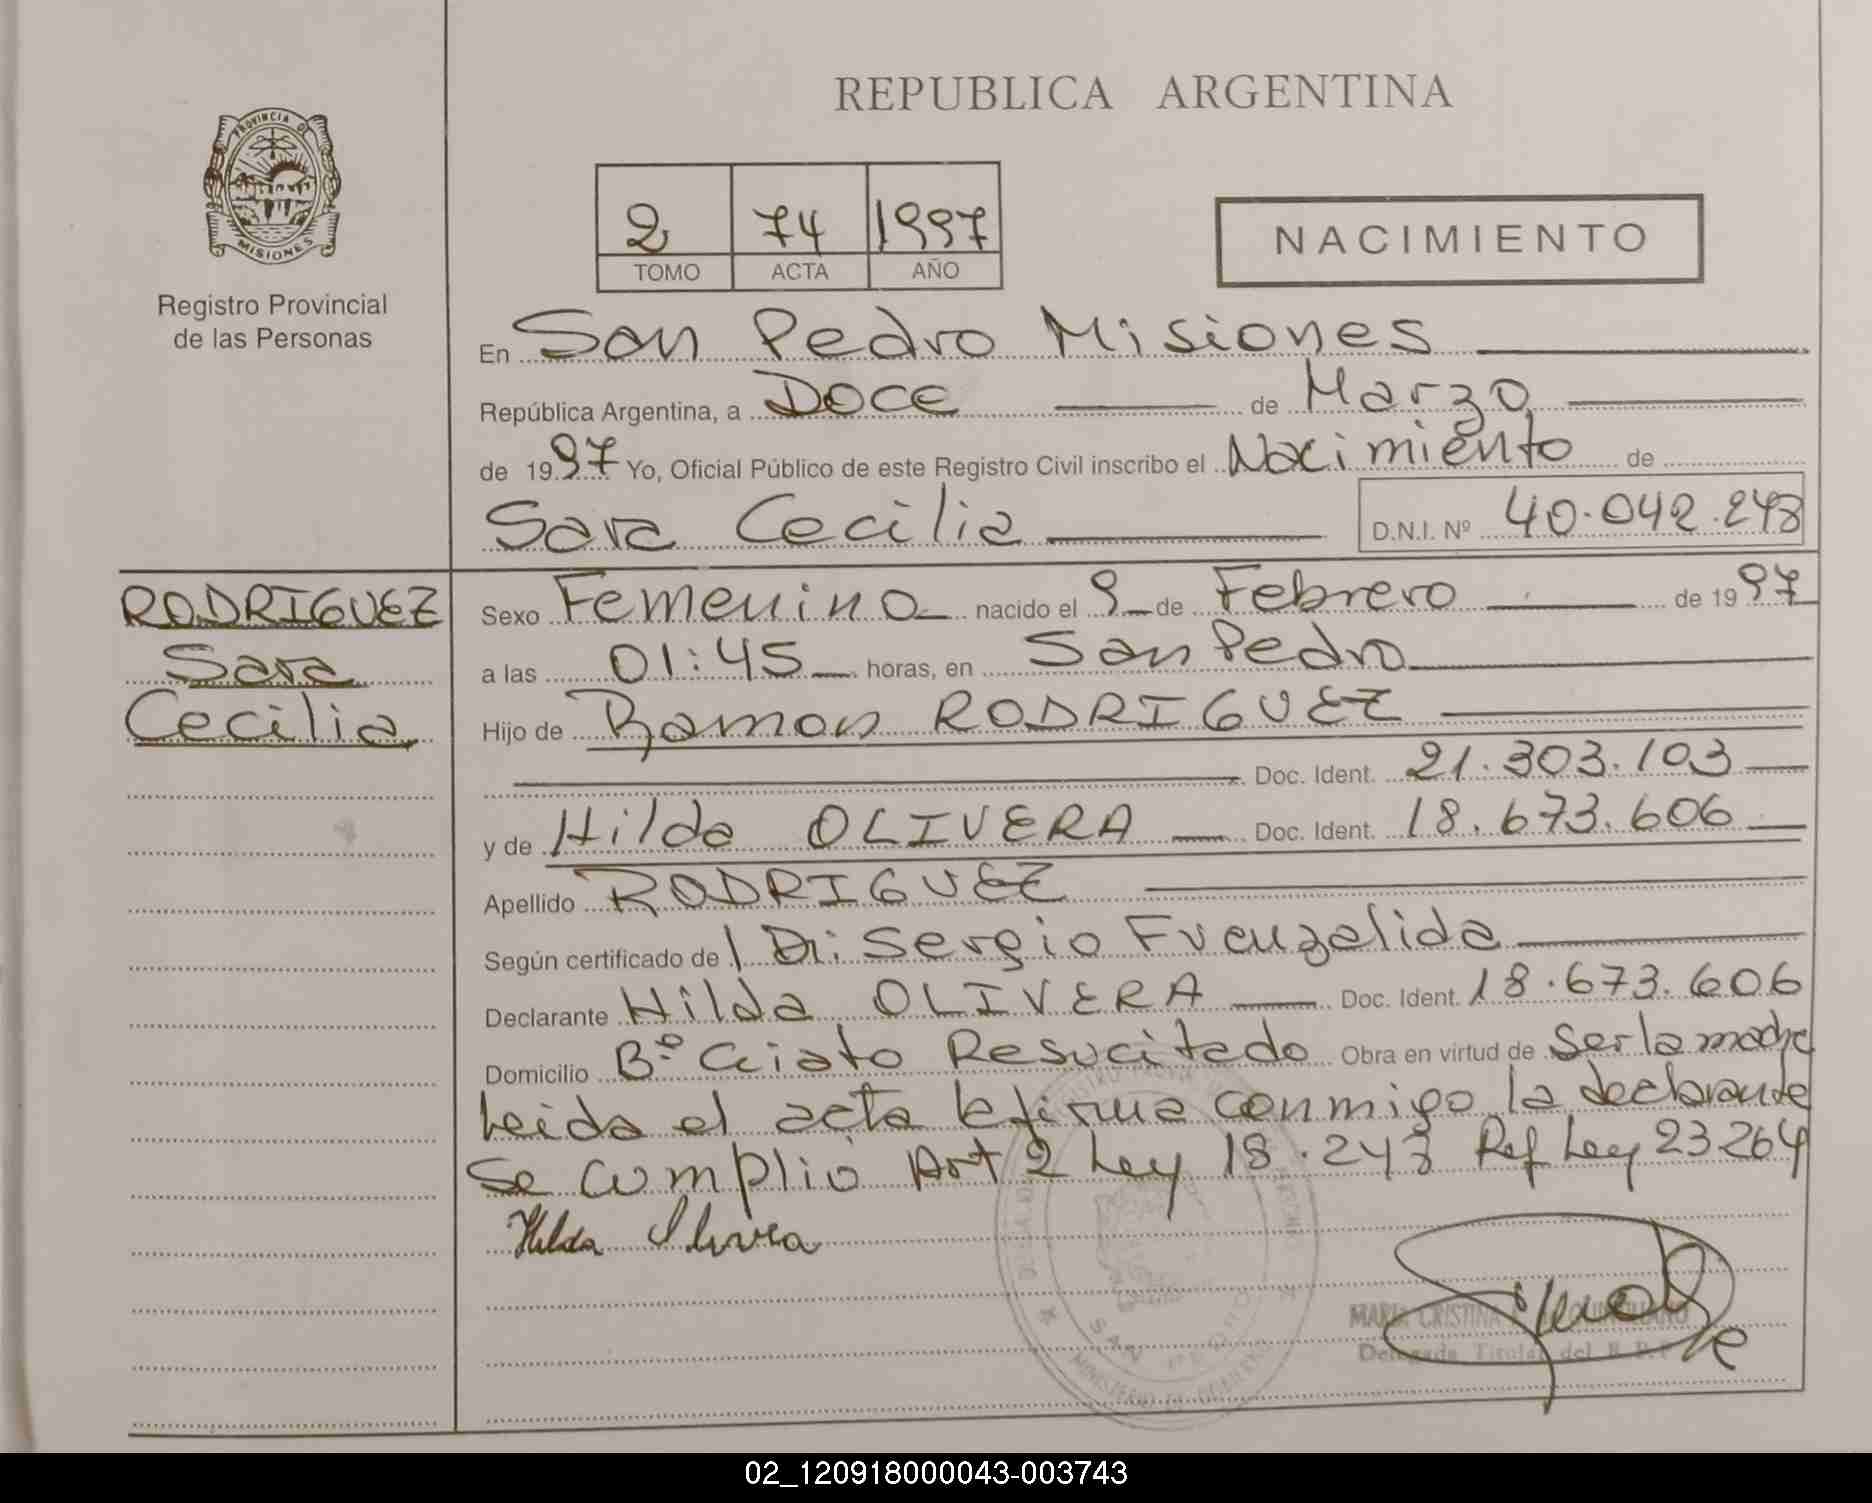 REPUBLICA ARGENTINA
PROVINCIA DE
MISIONES
Registro Provincial
de las Personas
2 74 1997
TOMO ACTA AÑO
NACIMIENTO
En San Pedro Misiones
República Argentina, a Doce de Marzo
de 1997 Yo, Oficial Público de este Registro Civil inscribo el Nacimiento de
Sara Cecilia D.N.I. Nº 40.042.243
RODRIGUEZ
Sara
Cecilia
Sexo Femenino nacido el 9 de Febrero de 1997
a las 01:45 horas, en San Pedro
Hijo de Ramon RODRIGUEZ
Doc. Ident. 21.303.103
y de Hilda OLIVERA Doc. Ident. 18.673.606
Apellido RODRIGUEZ
Según certificado de Dr: Sergio Fuenzalida
Declarante Hilda OLIVERA Doc. Ident. 18.673.606
Domicilio Bº Cristo Resucitado Obra en virtud de Ser la madre
Leida el acta la firma conmigo la declarante
Se cumplio Art 2 Ley 18.248 Ref Ley 23264
Hilda Olivera
SAN PEDRO
MINISTERIO DE GOBIERNO
MARIA CRISTINA
Delegada Titular del R.P.P
02_120918000043-003743